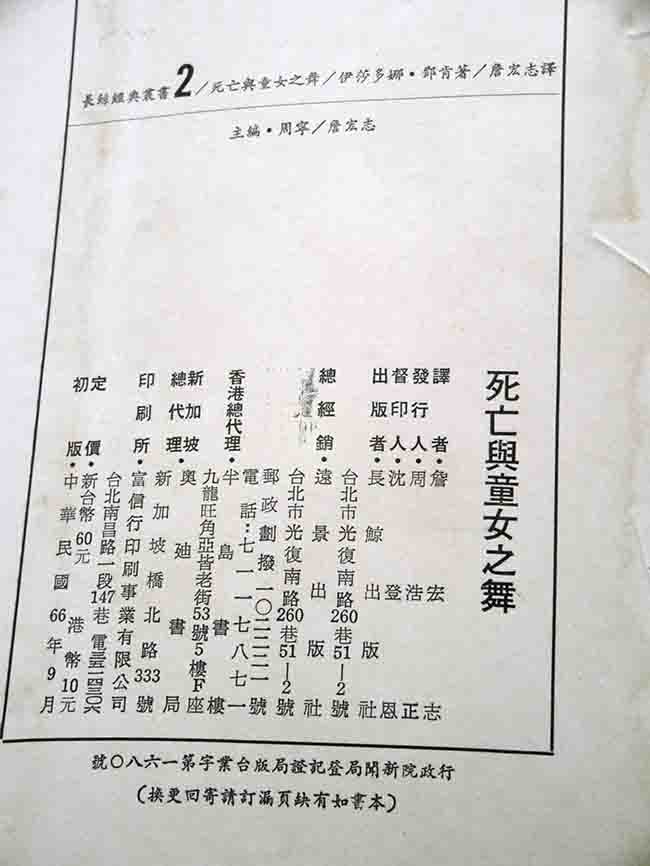 長鯨經典叢書2/死亡與童女之舞/伊莎多娜・鄧肯著/詹宏志譯
主編・周寧/詹宏志
死亡與童女之舞
譯者・詹宏志
發行人・周浩正
督印人・沈登恩
出版者・長鯨出版社
台北市光復南路260巷51—2號
總經銷・遠景出版社
台北市光復南路260巷51—2號
郵政劃撥 號
電話：七一一七八七一
香港總代理・半島書樓
九龍旺角亞皆老街53號5樓F座
新加坡總代理・奧迪書局
新加坡橋北路333號
印刷所・富信行印刷事業有限公司
台北南昌路一段147巷 電
定價・新台幣60元 港幣10元
初版・中華民國66年9月
行政院新聞局登記證局版台業字第一六八〇號
(本書如有缺頁漏訂請寄回更換)